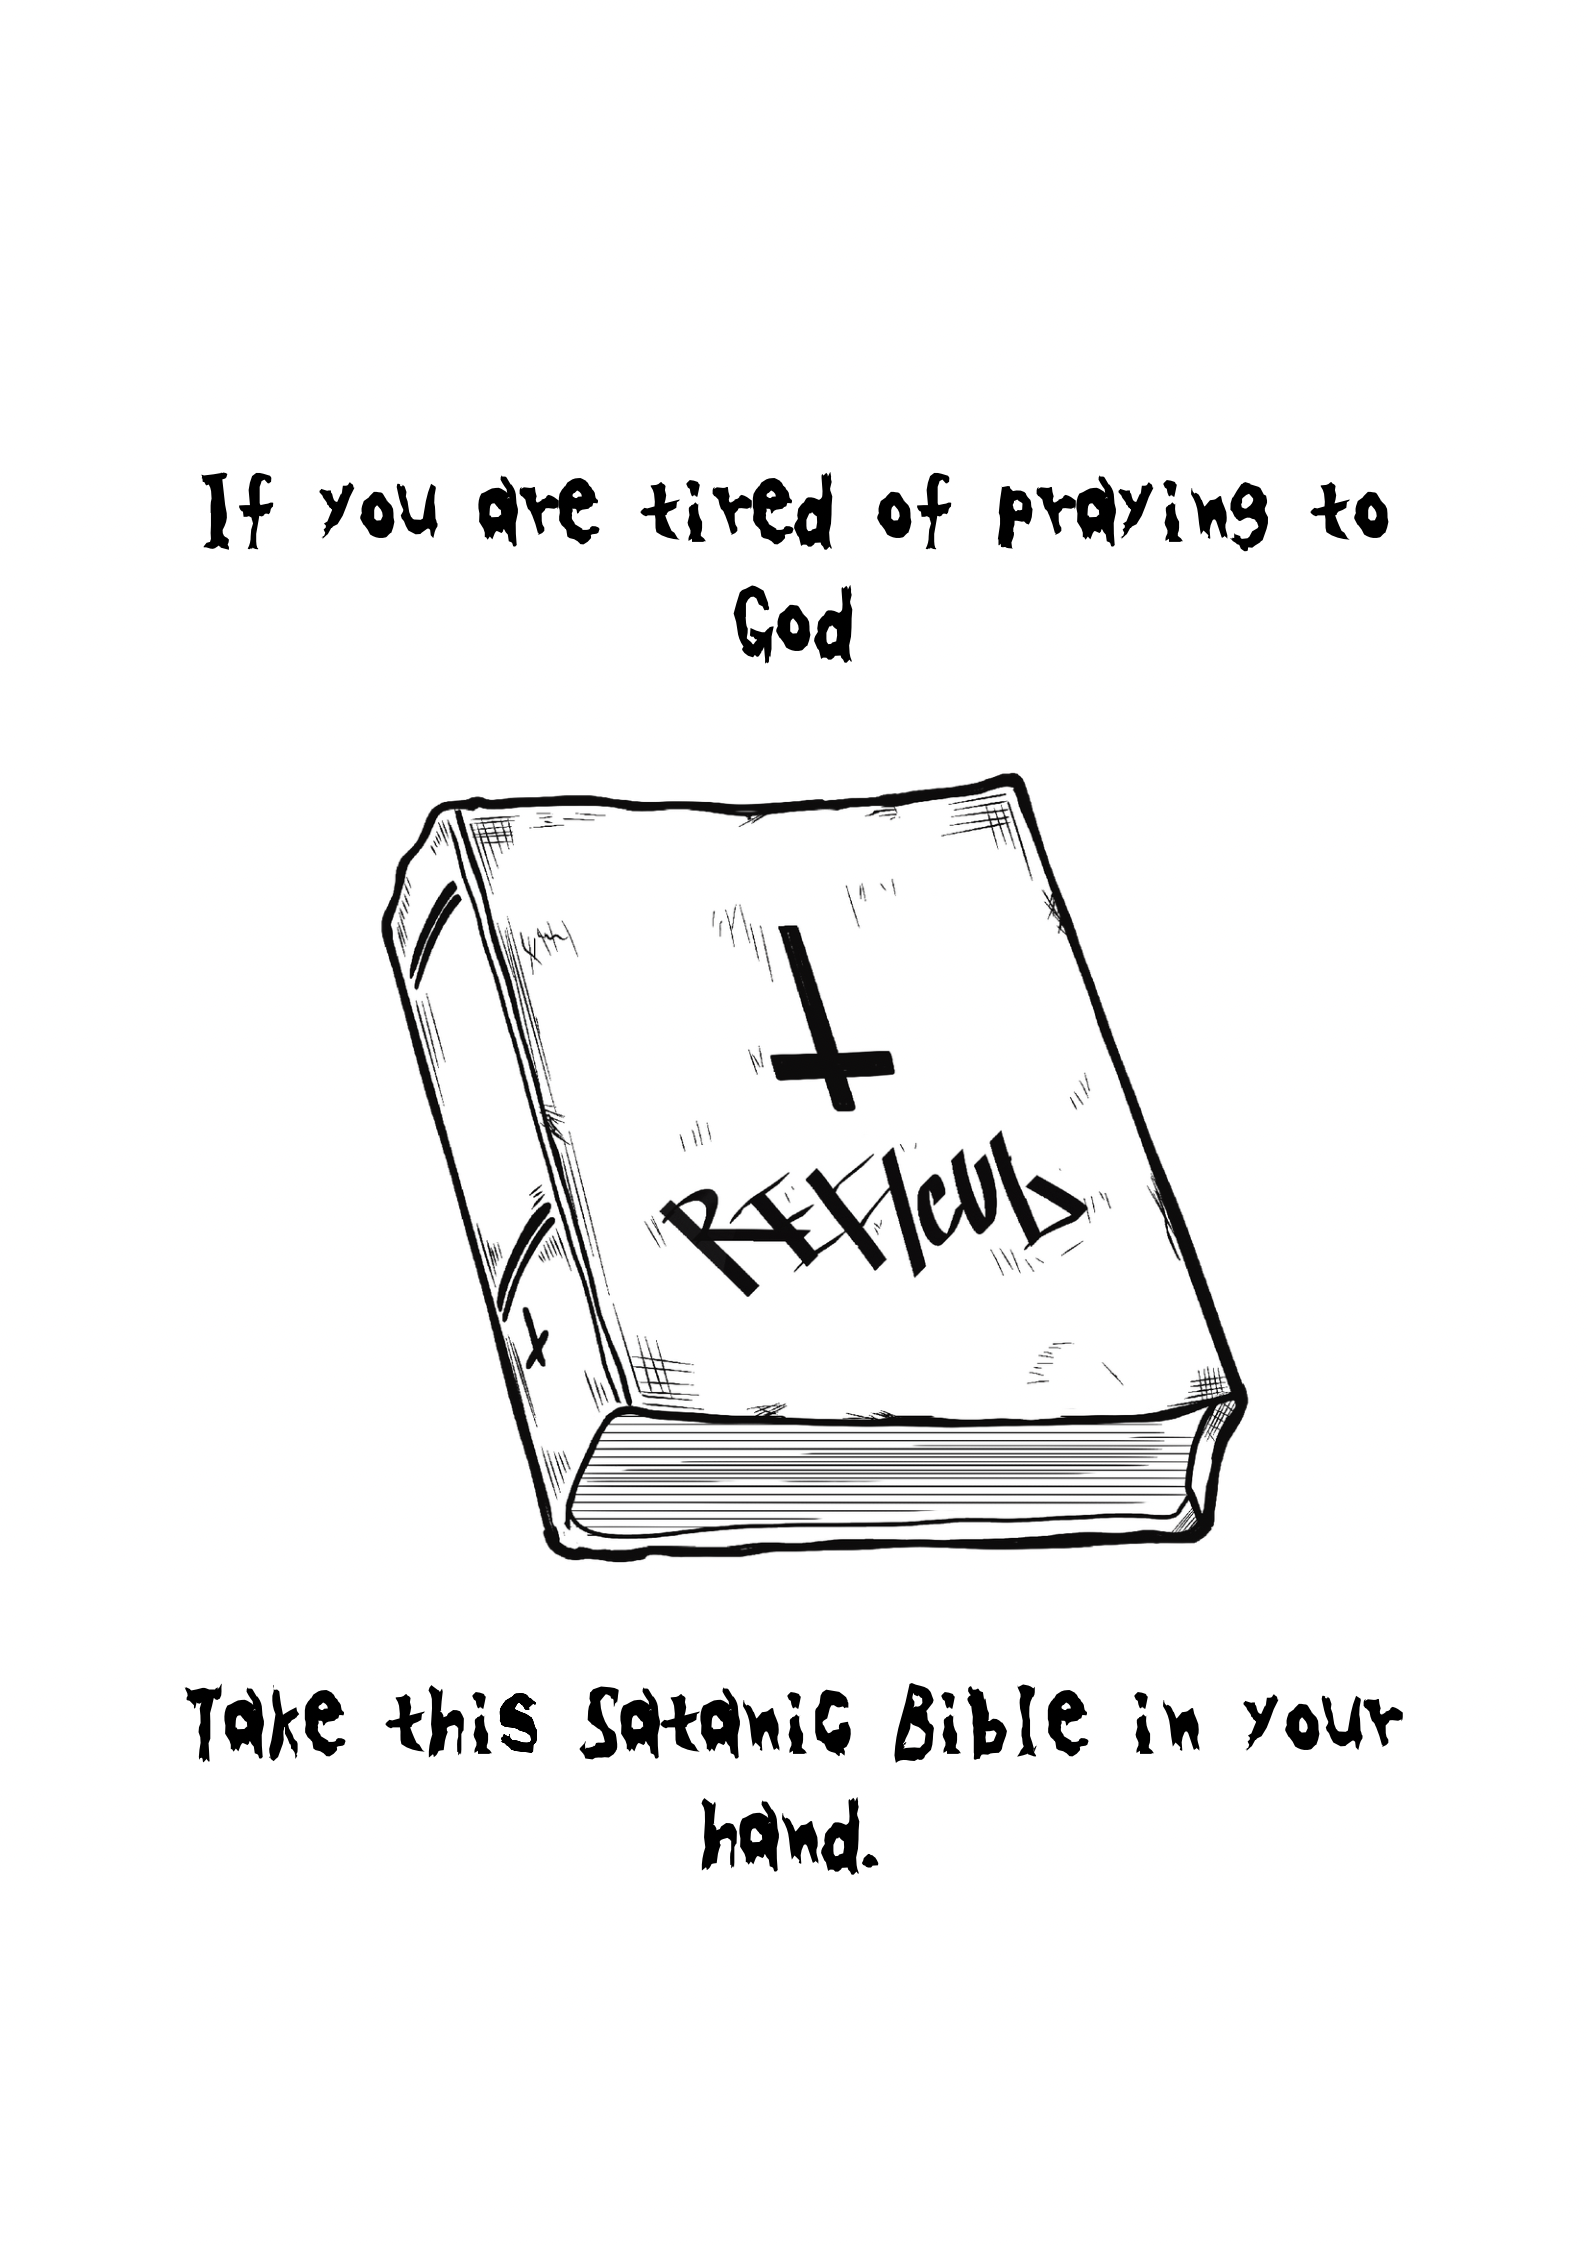 If you are tired of praying to
God
REFICUL
Take this Satanic Bible in your
hand.